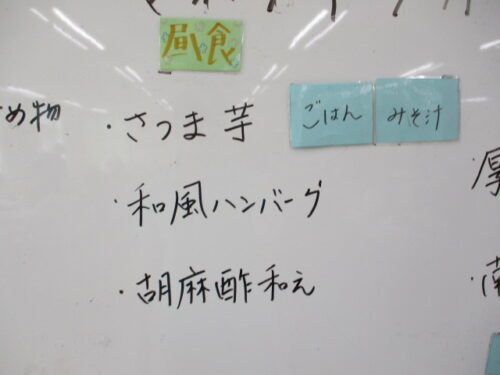 昼食
ごはん みそ汁
め物
・さつま芋
・和風ハンバーグ
・胡麻酢和え